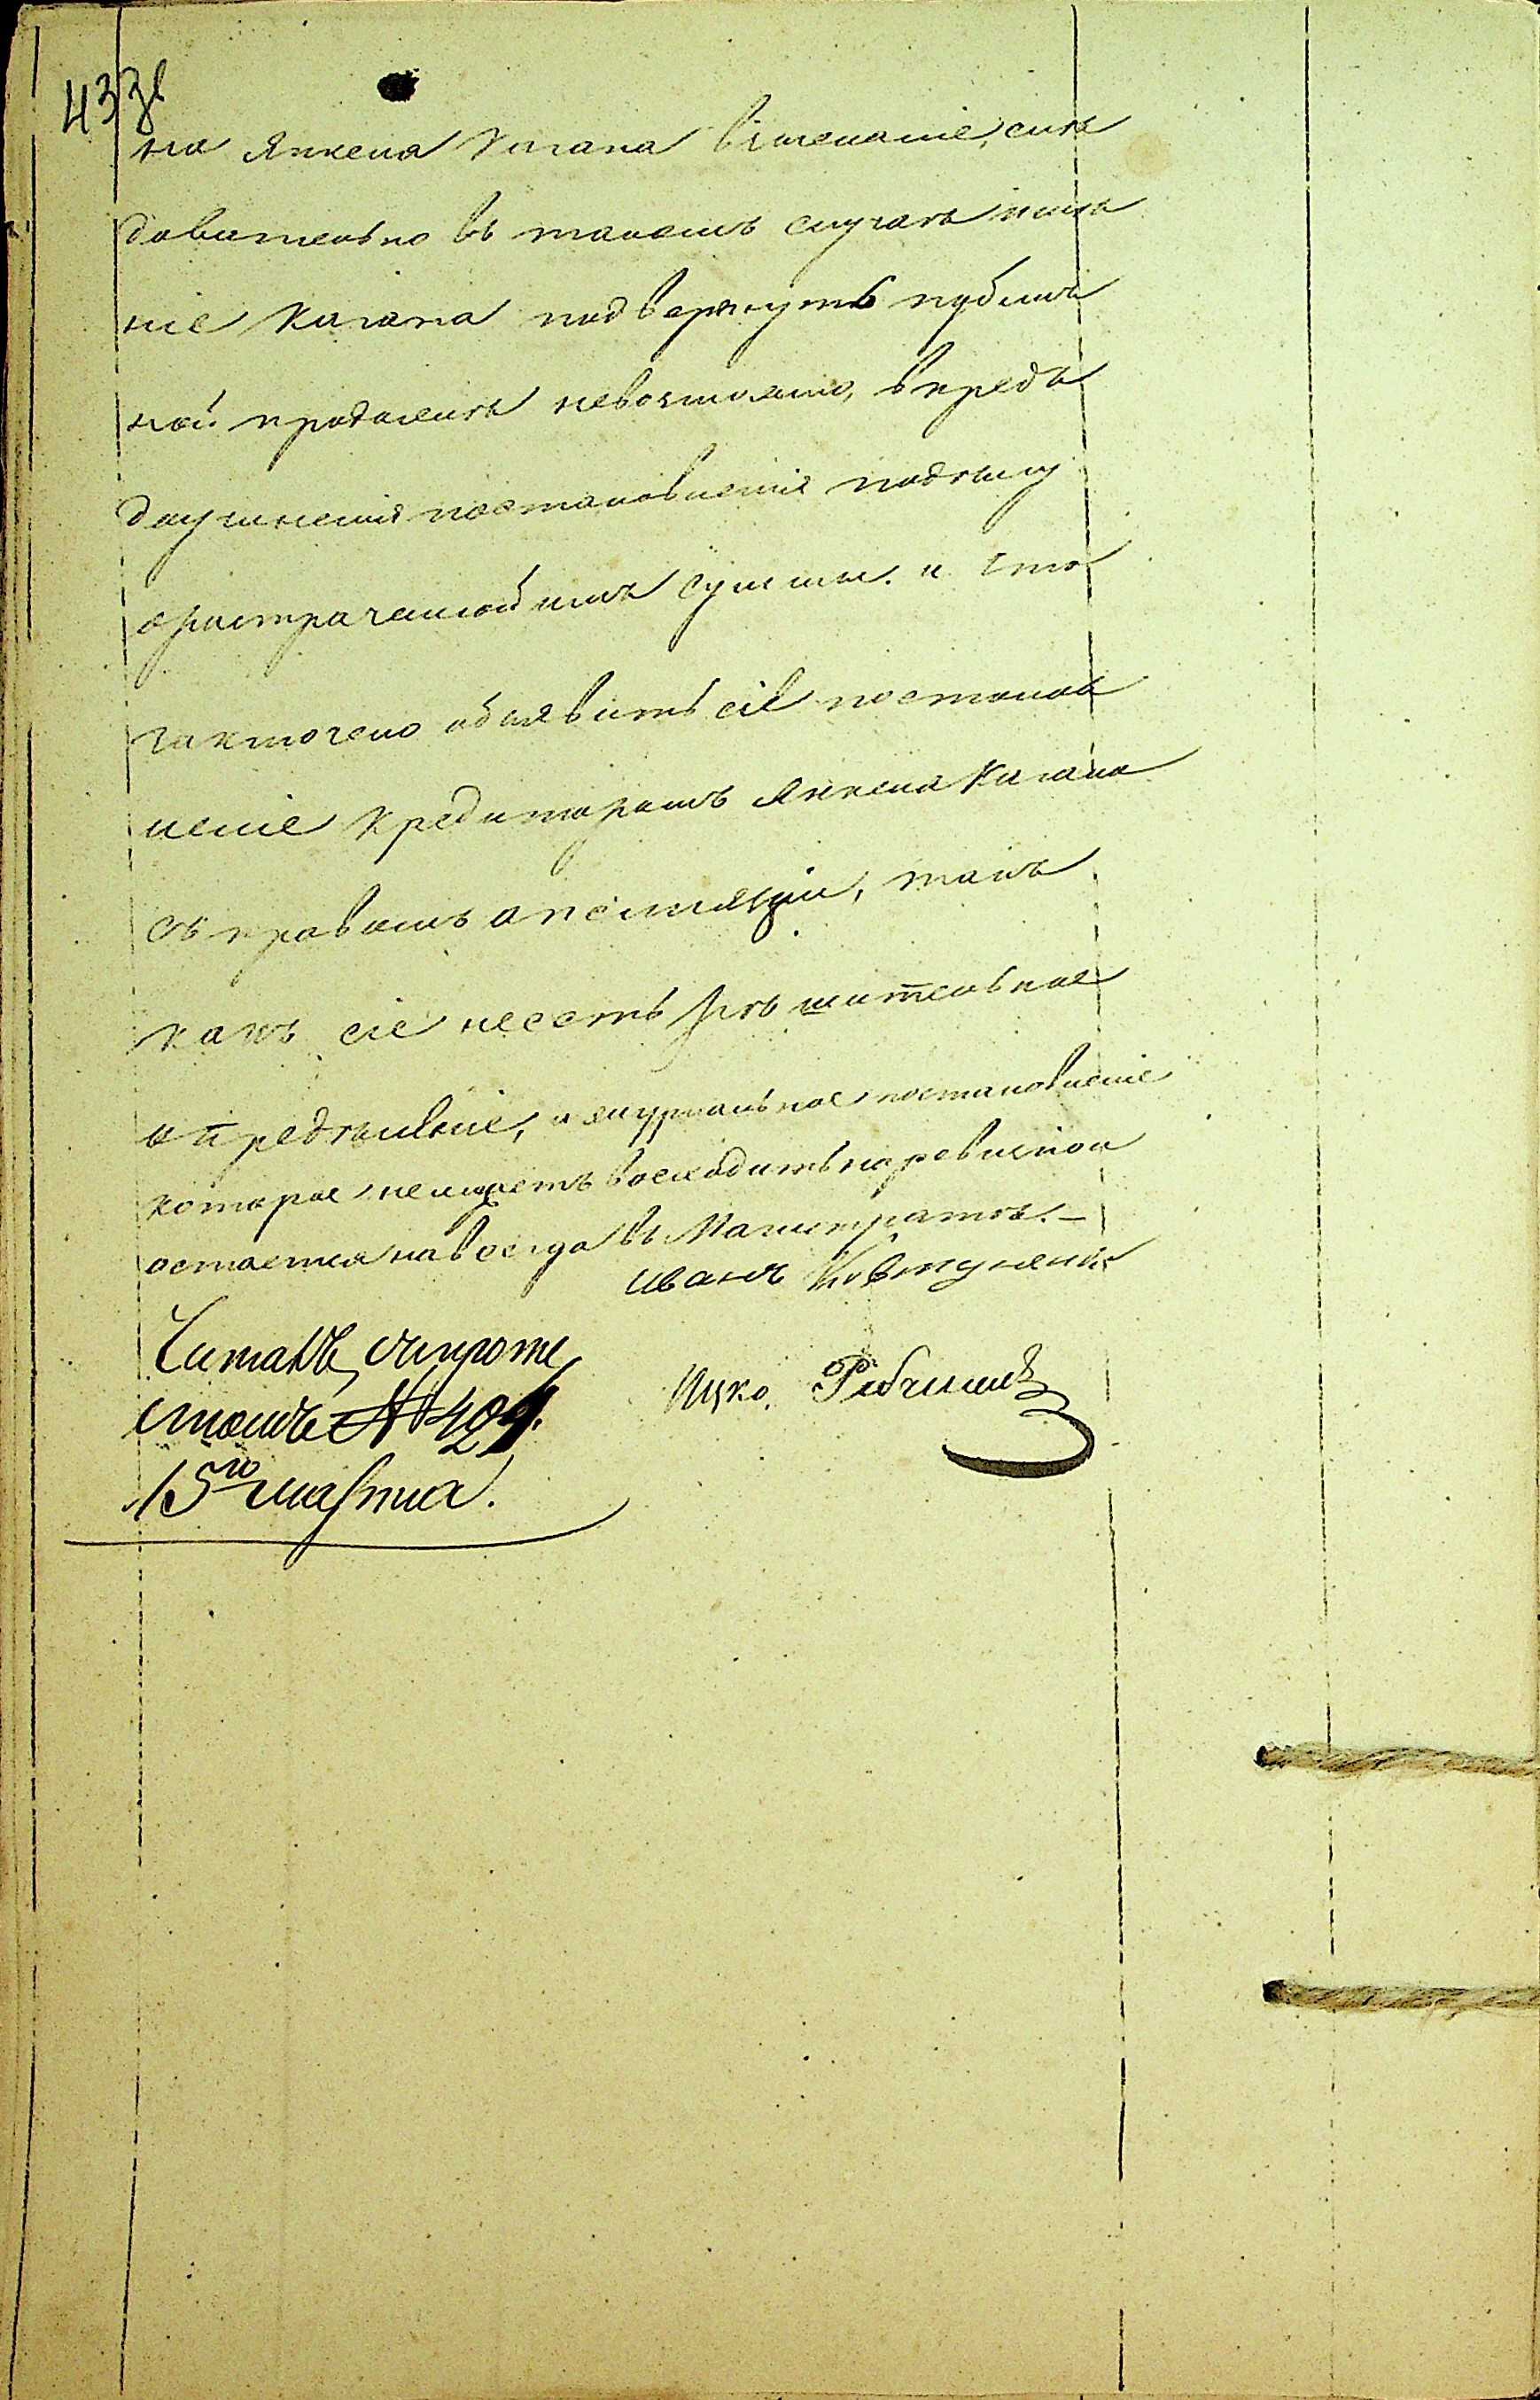 43 зв
на Янкеля Кагана взысканіе, слѣ
довательно въ такомъ случаѣ имѣ
ніе Кагана подвергнуть публич
ной продажѣ невозможно, впредь
доучиненія постановленія подѣлу
орастраченной имъ суммы. и
заключено объявить сіе постанов
леніе Кредиторамъ Янкеля Кагана
съ правомъ апелляціи, такъ
какъ сіе несеть рѣшительное
опредѣленіе, а журнальное постановленіе
которое неможетъ восходить наревизію и
остается навсегда въ Магистратѣ. —
Иванъ Ковтуненко
Читалъ, съпроте
стомъ №
15го марта.
Ицко